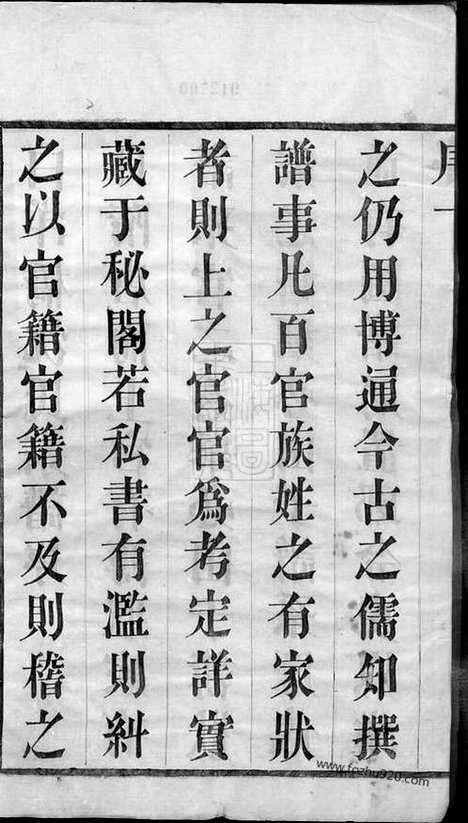 之仍用博通今古之儒知撰
譜事凡百官族姓之有家狀
者則上之官官爲考定詳實
藏于秘閣若私書有濫則糾
之以官籍官籍不及則稽之
www.fozhu920.com